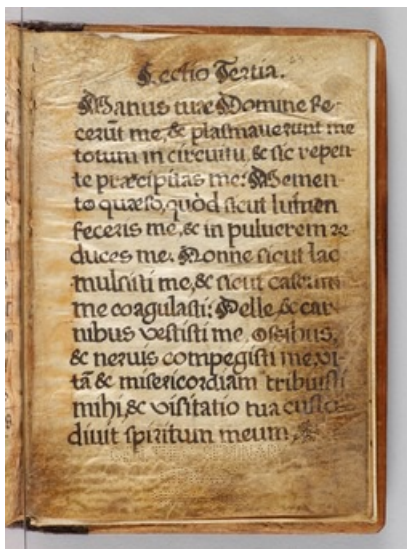 Lectio Tertia.
Manus tuæ Domine fe-
cerūt me, & plasmauerunt me
totum in circuitu, & sic repen-
te præcipitas me: Memen-
to quæso, quòd sicut lutmen
feceris me, & in puluerem re
duces me. Nonne sicut lac
mulsisti me, & sicut caseum
me coagulasti: Pelle & car-
nibus vestisti me, ossibus,
& neruis compegisti me. vi-
tā & misericordiam tribuisti
mihi, & visitatio tua custo-
diuit spiritum meum,